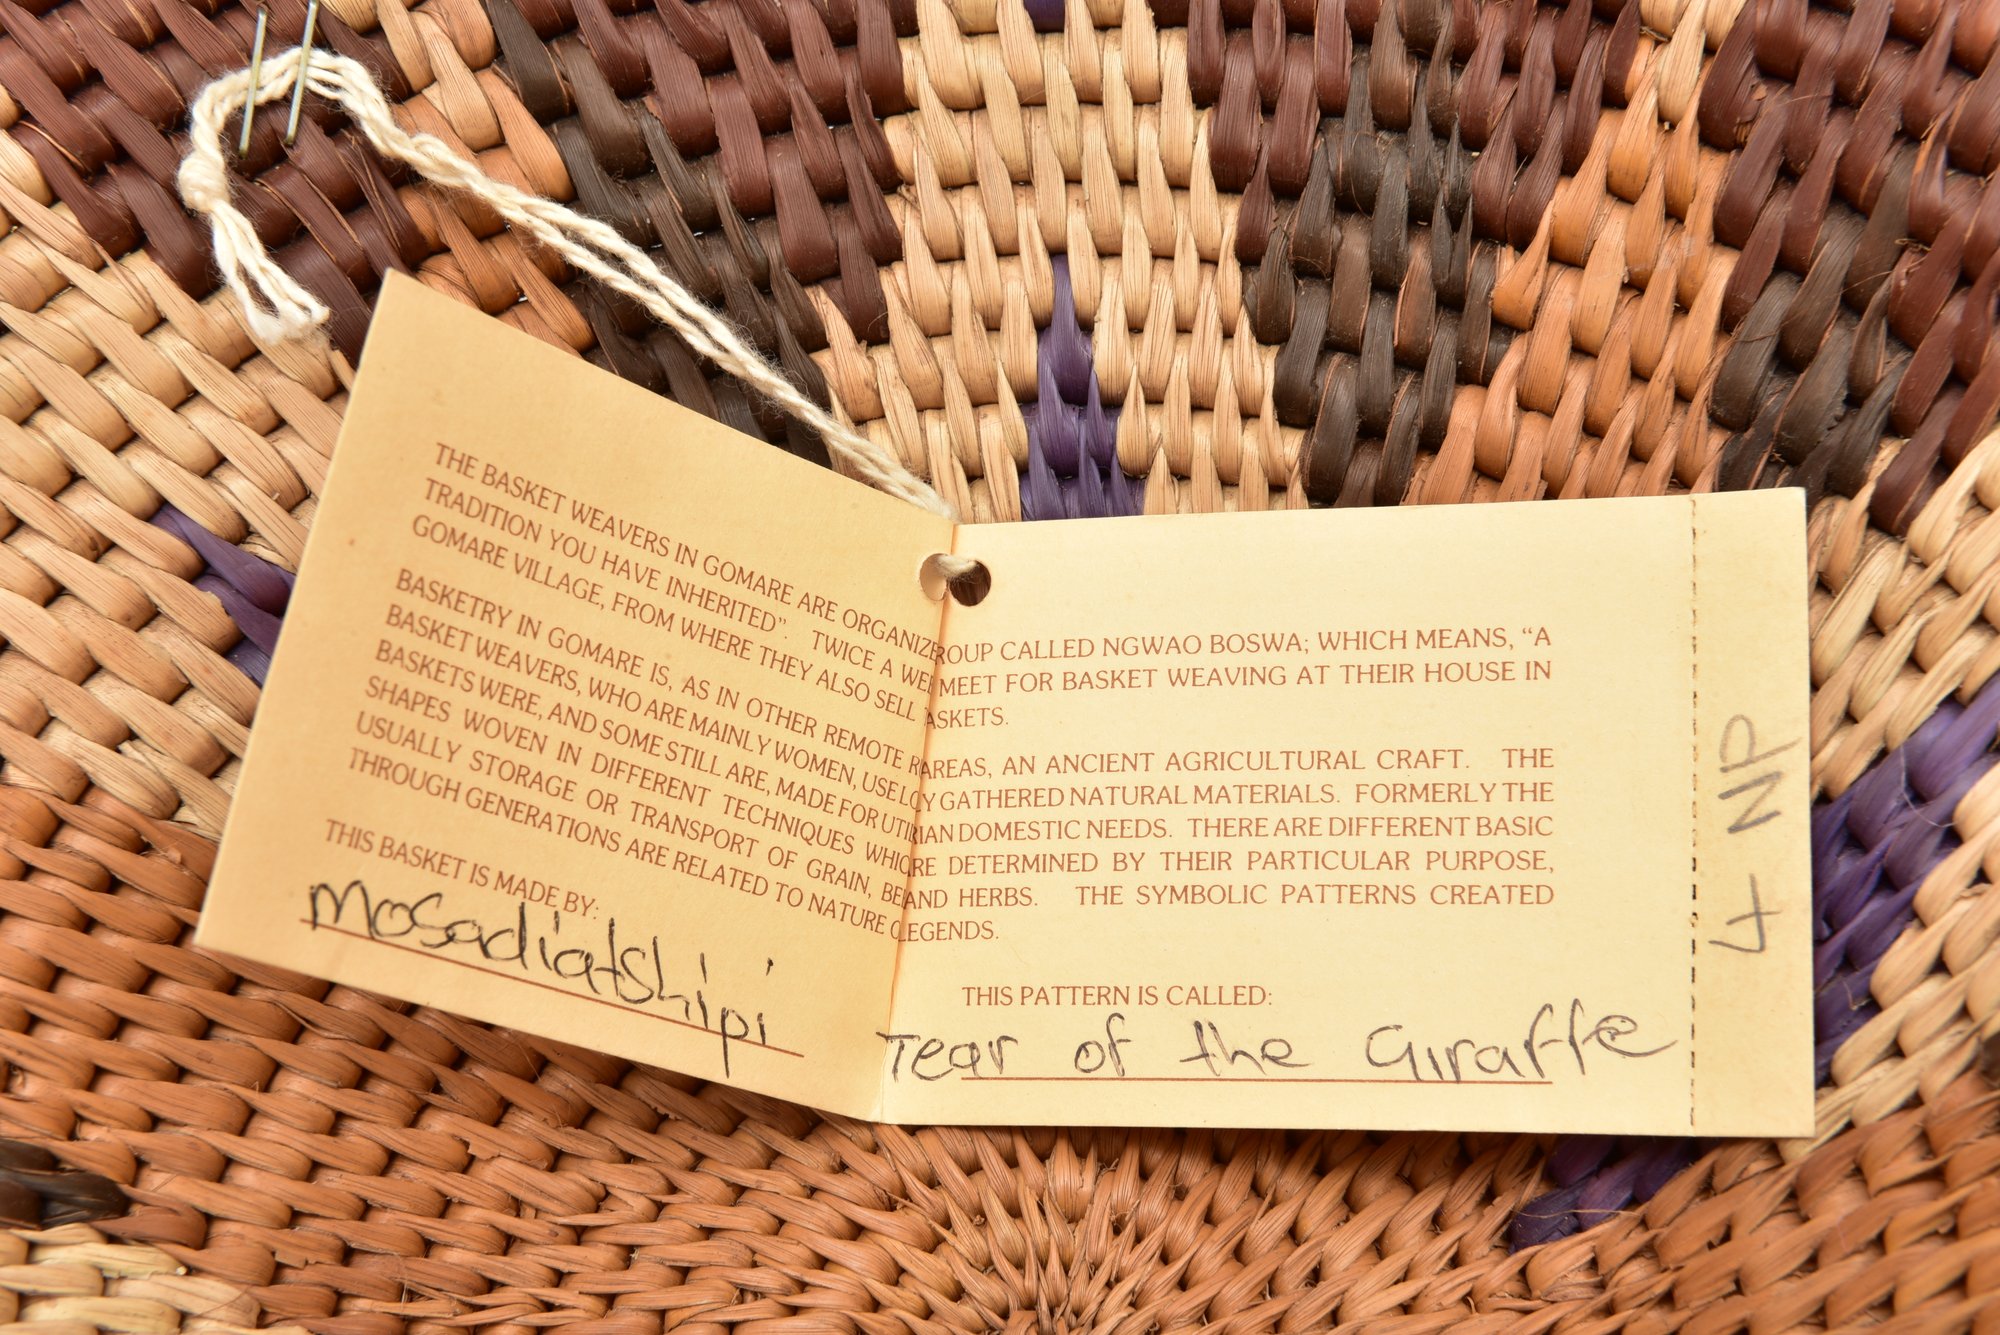 THE BASKET WEAVERS IN GOMARE ARE ORGANIZE ROUP CALLED NGWAO BOSWA; WHICH MEANS, “A
TRADITION YOU HAVE INHERITED”. TWICE A WE MEET FOR BASKET WEAVING AT THEIR HOUSE IN
GOMARE VILLAGE, FROM WHERE THEY ALSO SELL ASKETS.
BASKETRY IN GOMARE IS, AS IN OTHER REMOTE AREAS, AN ANCIENT AGRICULTURAL CRAFT. THE
BASKET WEAVERS, WHO ARE MAINLY WOMEN, USE LO Y GATHERED NATURAL MATERIALS. FORMERLY THE
BASKETS WERE, AND SOME STILL ARE, MADE FOR UTI IAN DOMESTIC NEEDS. THERE ARE DIFFERENT BASIC
SHAPES WOVEN IN DIFFERENT TECHNIQUES WHIC RE DETERMINED BY THEIR PARTICULAR PURPOSE,
USUALLY STORAGE OR TRANSPORT OF GRAIN, BE AND HERBS. THE SYMBOLIC PATTERNS CREATED
THROUGH GENERATIONS ARE RELATED TO NATURE LEGENDS.
THIS BASKET IS MADE BY:
Mosadiatshipi
THIS PATTERN IS CALLED:
Tear of the Giraffe
4 NP